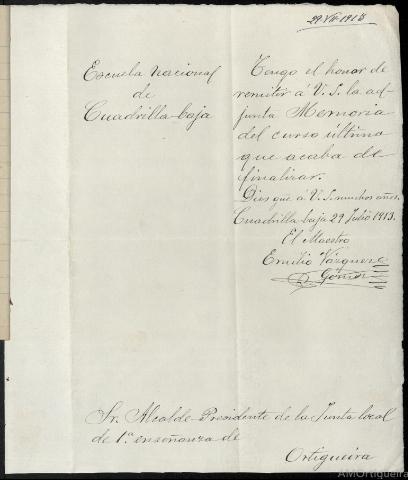 29 VII 1913
Escuela Nacional
de
Cuadrilla-baja
Tengo el honor de
remitir á V. S. la ad-
junta Memoria
del curso último
que acaba de
finalizar.
Dios gue á V. S. muchos años.
Cuadrilla-baja 29 Julio 1913.
El Maestro
Emilio Vázquez
Gómez
Sr. Alcalde-Presidente de la Junta local
de 1ª enseñanza de
Ortigueira
AMOrtigueira